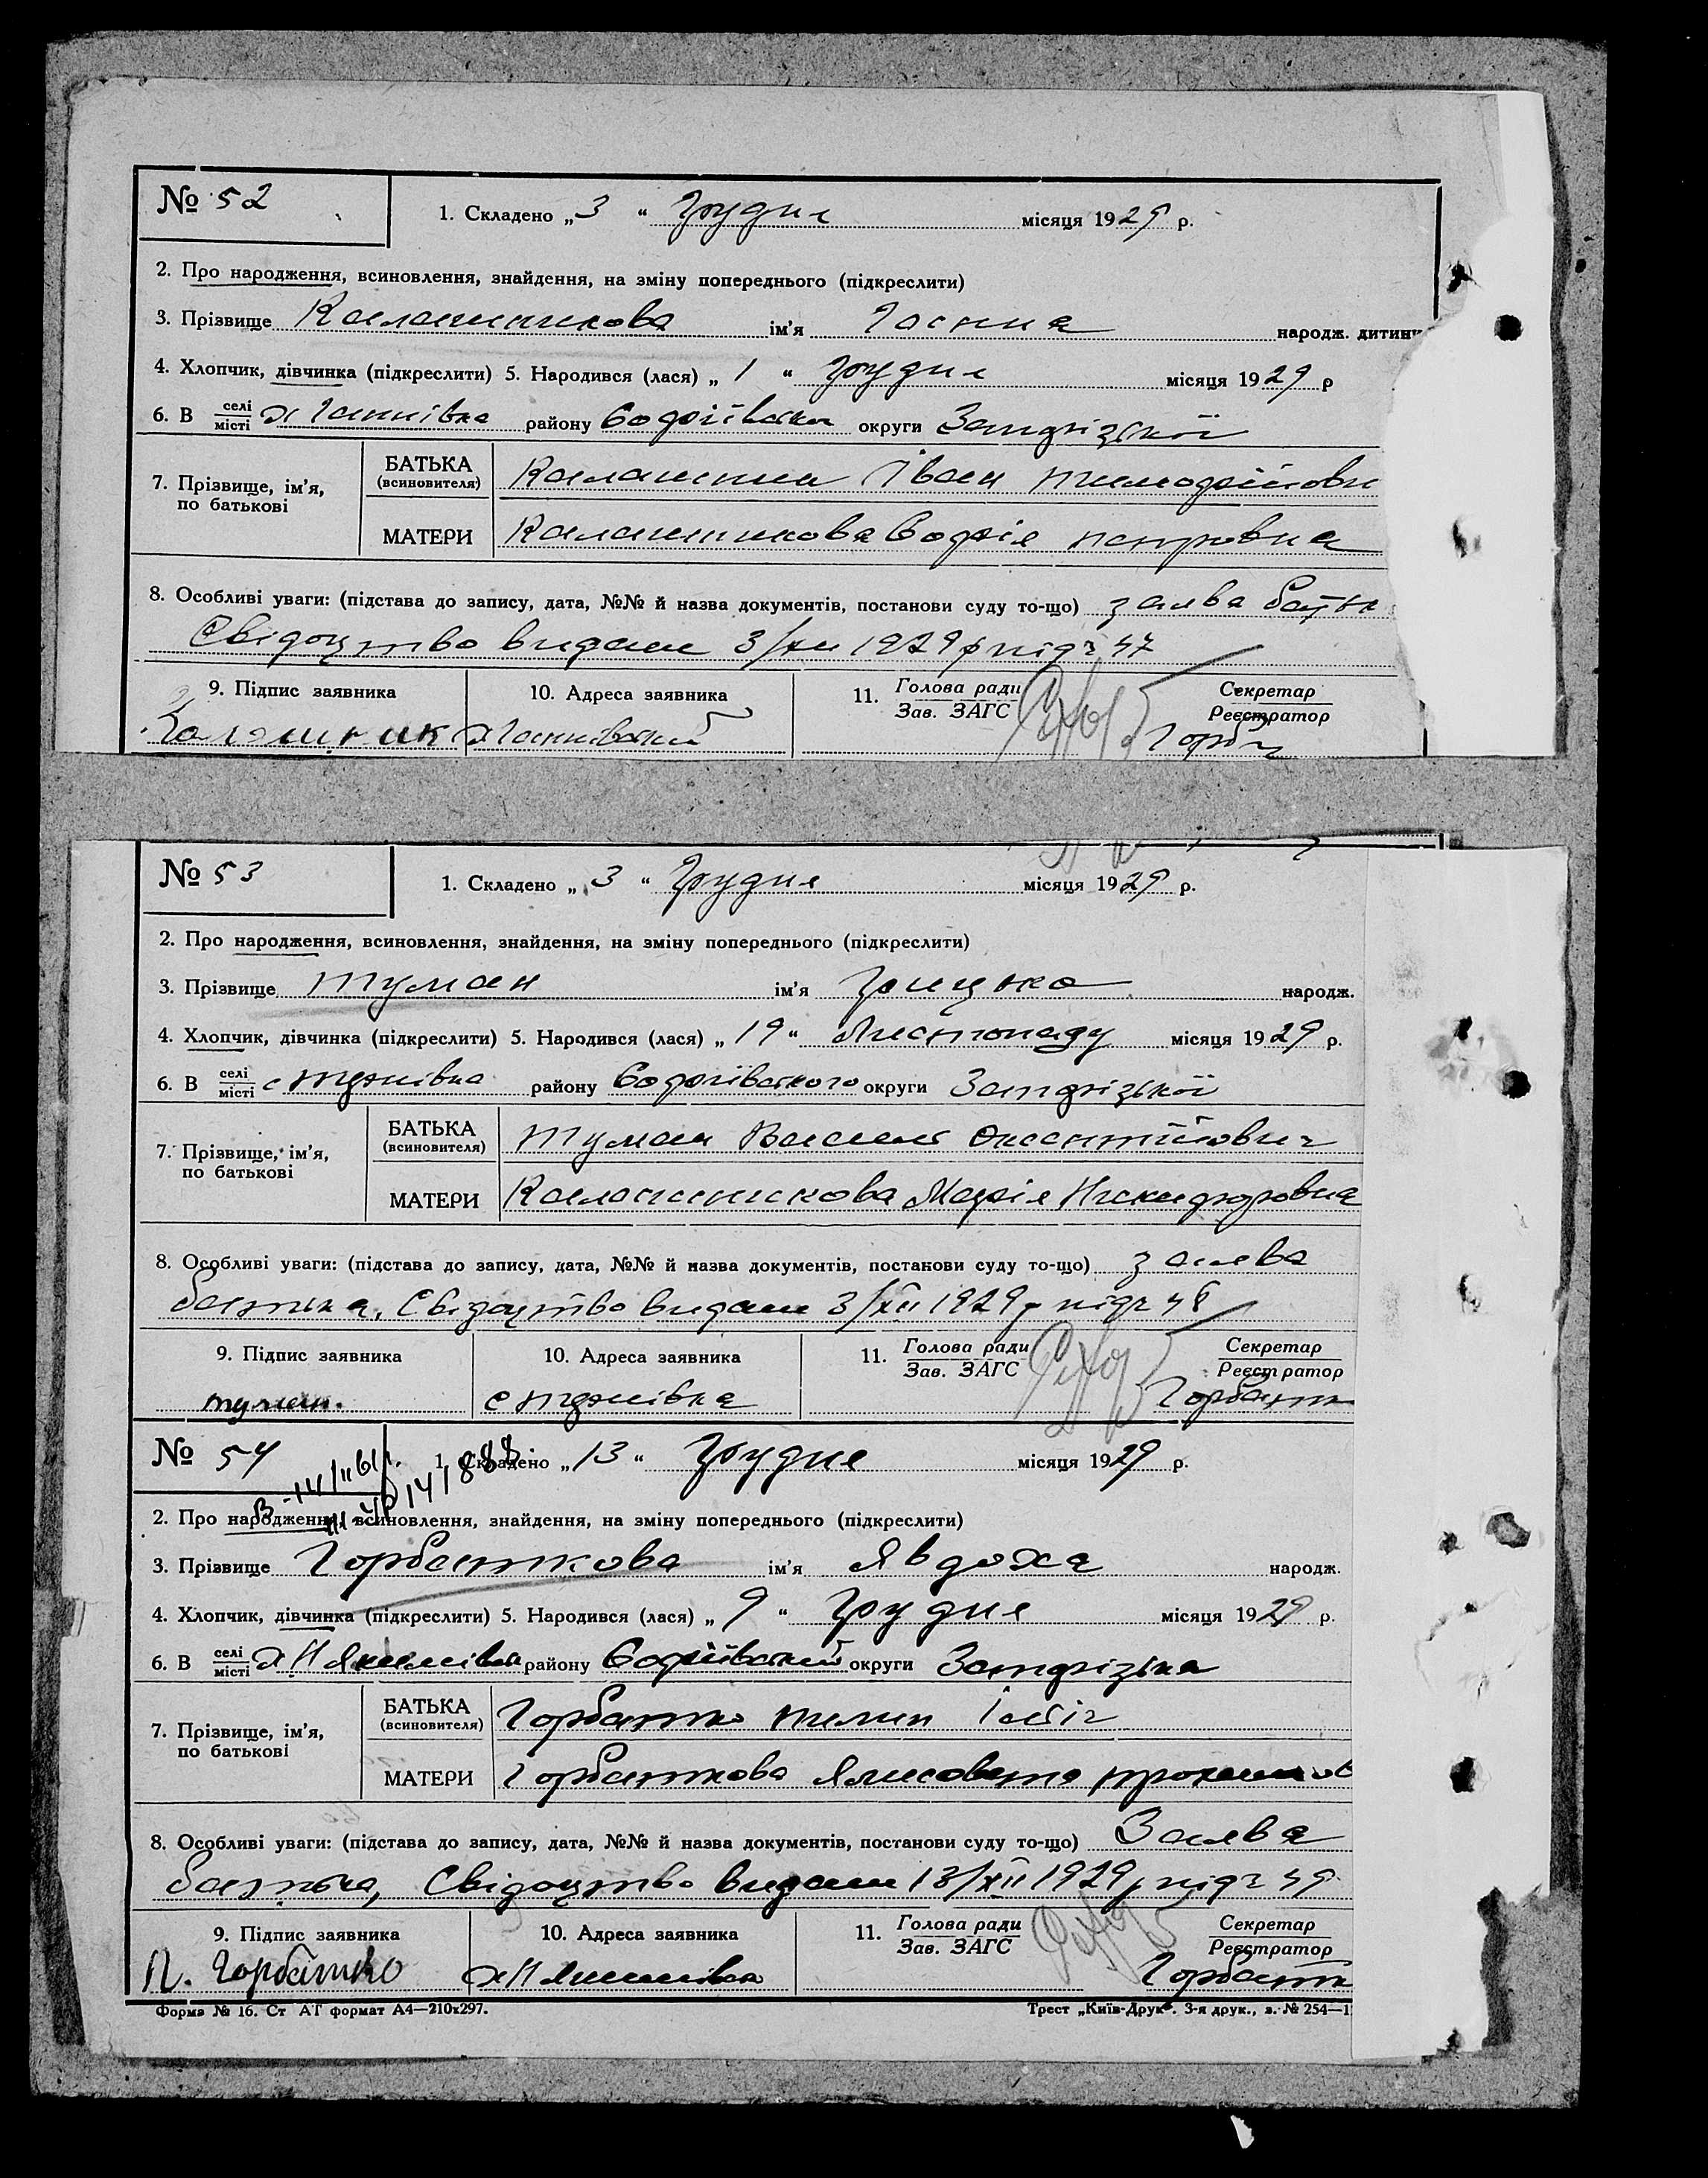 № 52
1. Складено „ 3 “ Грудня місяця 1929 р.
2. Про народження, всиновлення, знайдення, на зміну попереднього (підкреслити)
3. Прізвище Калашникова ім'я Ганна народж. дитини
4. Хлопчик, дівчинка (підкреслити) 5. Народився (лася) „ 1 “ Грудня місяця 1929 р
6. В селі/місті х Ганнівка району округи
7. Прізвище, ім'я, по батькові
БАТЬКА (всиновителя) Калашник Іван
МАТЕРИ Калашникова Софія петровна
8. Особливі уваги: (підстава до запису, дата, №№ й назва документів, постанови суду то-що) заява батьк
Свідоцтво видано 3/XII 1929 р під ч 47
9. Підпис заявника
10. Адреса заявника
11. Голова ради
Зав. ЗАГС
Секретар
Реєстратор
Калашник х Ганнівський
№ 53
1. Складено „ 3 “ Грудня місяця 1929 р.
2. Про народження, всиновлення, знайдення, на зміну попереднього (підкреслити)
3. Прізвище туман ім'я Грицько народж.
4. Хлопчик, дівчинка (підкреслити) 5. Народився (лася) „ 19 “ Листопаду місяця 1929 р.
6. В селі/місті с району Софіївського округи
7. Прізвище, ім'я, по батькові
БАТЬКА (всиновителя) туман Василь
МАТЕРИ Калашникова Марія
8. Особливі уваги: (підстава до запису, дата, №№ й назва документів, постанови суду то-що) заява
батька, Свідоцтво видано 3/XII 1929 р під ч 48
9. Підпис заявника
10. Адреса заявника
11. Голова ради
Зав. ЗАГС
Секретар
Реєстратор
туман. с
№ 54
1. Складено „ 13 “ Грудня місяця 1929 р.
2. Про народження, всиновлення, знайдення, на зміну попереднього (підкреслити)
3. Прізвище Горбаткова ім'я Явдоха народж.
4. Хлопчик, дівчинка (підкреслити) 5. Народився (лася) „ 9 “ Грудня місяця 1929 р.
6. В селі/місті х Н Якимівка району Софіївський округи
7. Прізвище, ім'я, по батькові
БАТЬКА (всиновителя) Горбатко
МАТЕРИ Горбаткова
8. Особливі уваги: (підстава до запису, дата, №№ й назва документів, постанови суду то-що) Заява
батька, Свідоцтво видано 13/XII 1929 р під ч 49
9. Підпис заявника
10. Адреса заявника
11. Голова ради
Зав. ЗАГС
Секретар
Реєстратор
П. Горбатко х Н Якимівка
Форма № 16. Ст АТ формат А4—210х297.
Трест „Київ-Друк“. 3-я друк., з. № 254—1